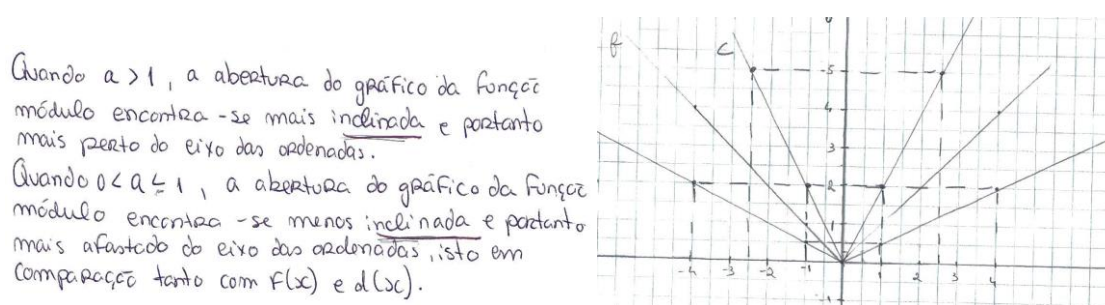 Quando a > 1, a abertura do gráfico da função
módulo encontra-se mais inclinada e portanto
mais perto do eixo das ordenadas.
Quando 0 < a ≤ 1, a abertura do gráfico da função
módulo encontra-se menos inclinada e portanto
mais afastado do eixo das ordenadas, isto em
comparação tanto com f(x) e d(x).
f C
5
4
3
2
-4 -3 -2 -1 1 2 3 4
-1